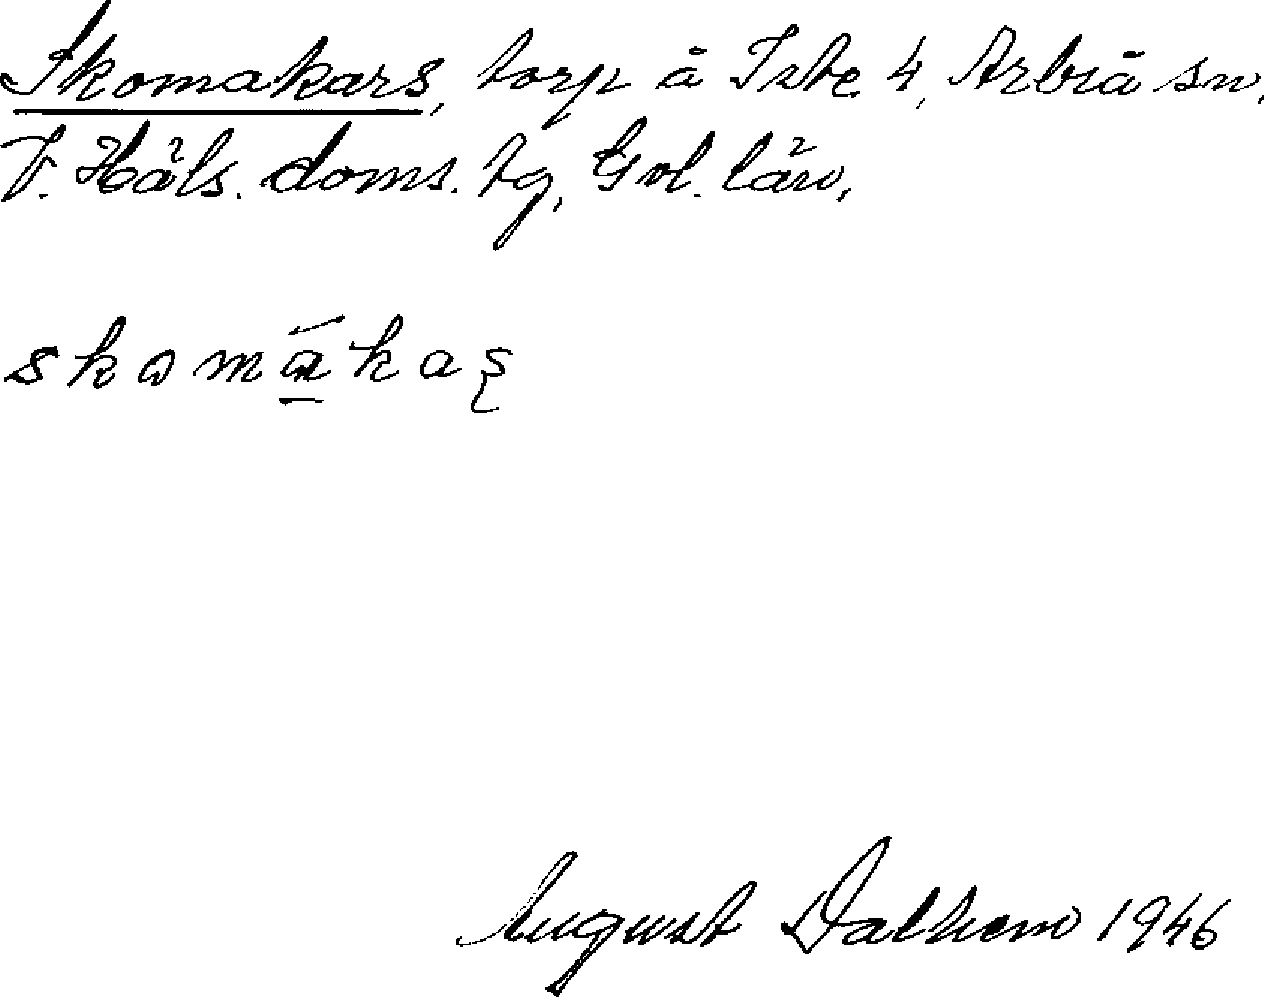 Skomakars, torp å Iste 4, Arbrå sn,
V. Häls. doms. tg, Gvl. län,
skomákaş
August Dalhem 1946